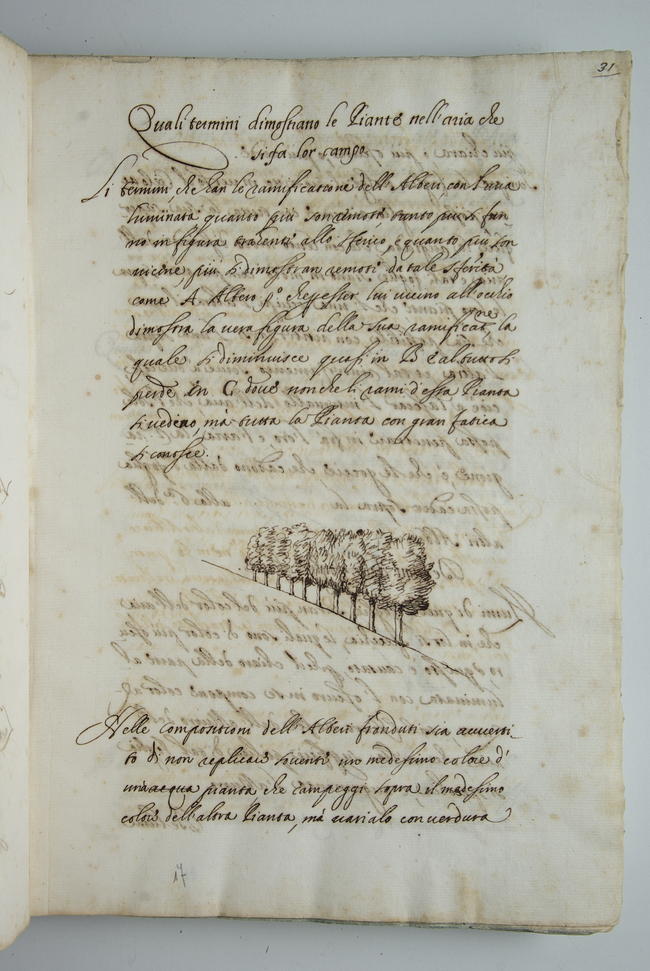 31
Quali termini dimostrano le Piante nell'aria che
si fa lor campo
Li termini, che han le ramificatione dell'Alberi, con l'aria
luminata quanto più son remoti, tanto più si fan
no in figura traenti allo sferico, e quanto più son
vicine, più si dimostran remoti da tale sferità,
come A Albero p.º che per ester lui vicino all'ochio
dimostra la vera figura della sua ramificatne la
quale si diminuisce quasi in B e al tutto si
perde in C dove non che li rami d'essa Pianta
si vedino, mà tutta la Pianta con gran fatica
si conosce.
Nelle compositioni dell'Alberi fronduti sia avverti_
to di non replicare troventi uno medesimo colore d'
una pianta che campeggi sopra il medesimo
colore dell'altra Pianta, mà varialo con verdura
17